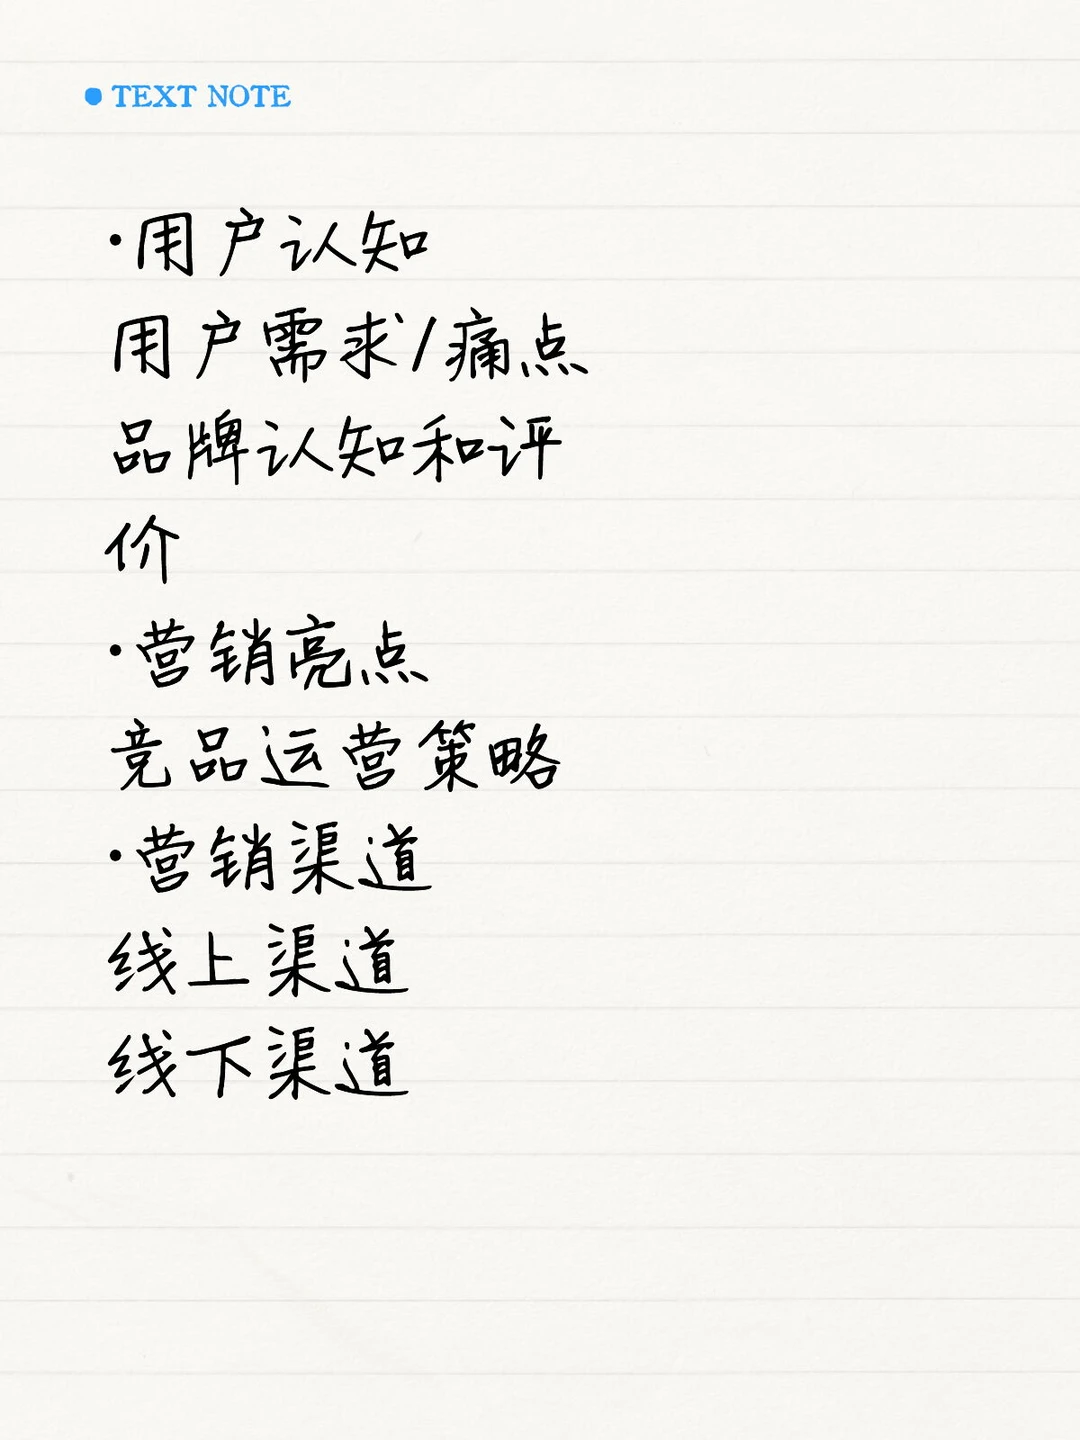 TEXT NOTE
·用户认知
用户需求/痛点
品牌认知和评
价
·营销亮点
竞品运营策略
·营销渠道
线上渠道
线下渠道